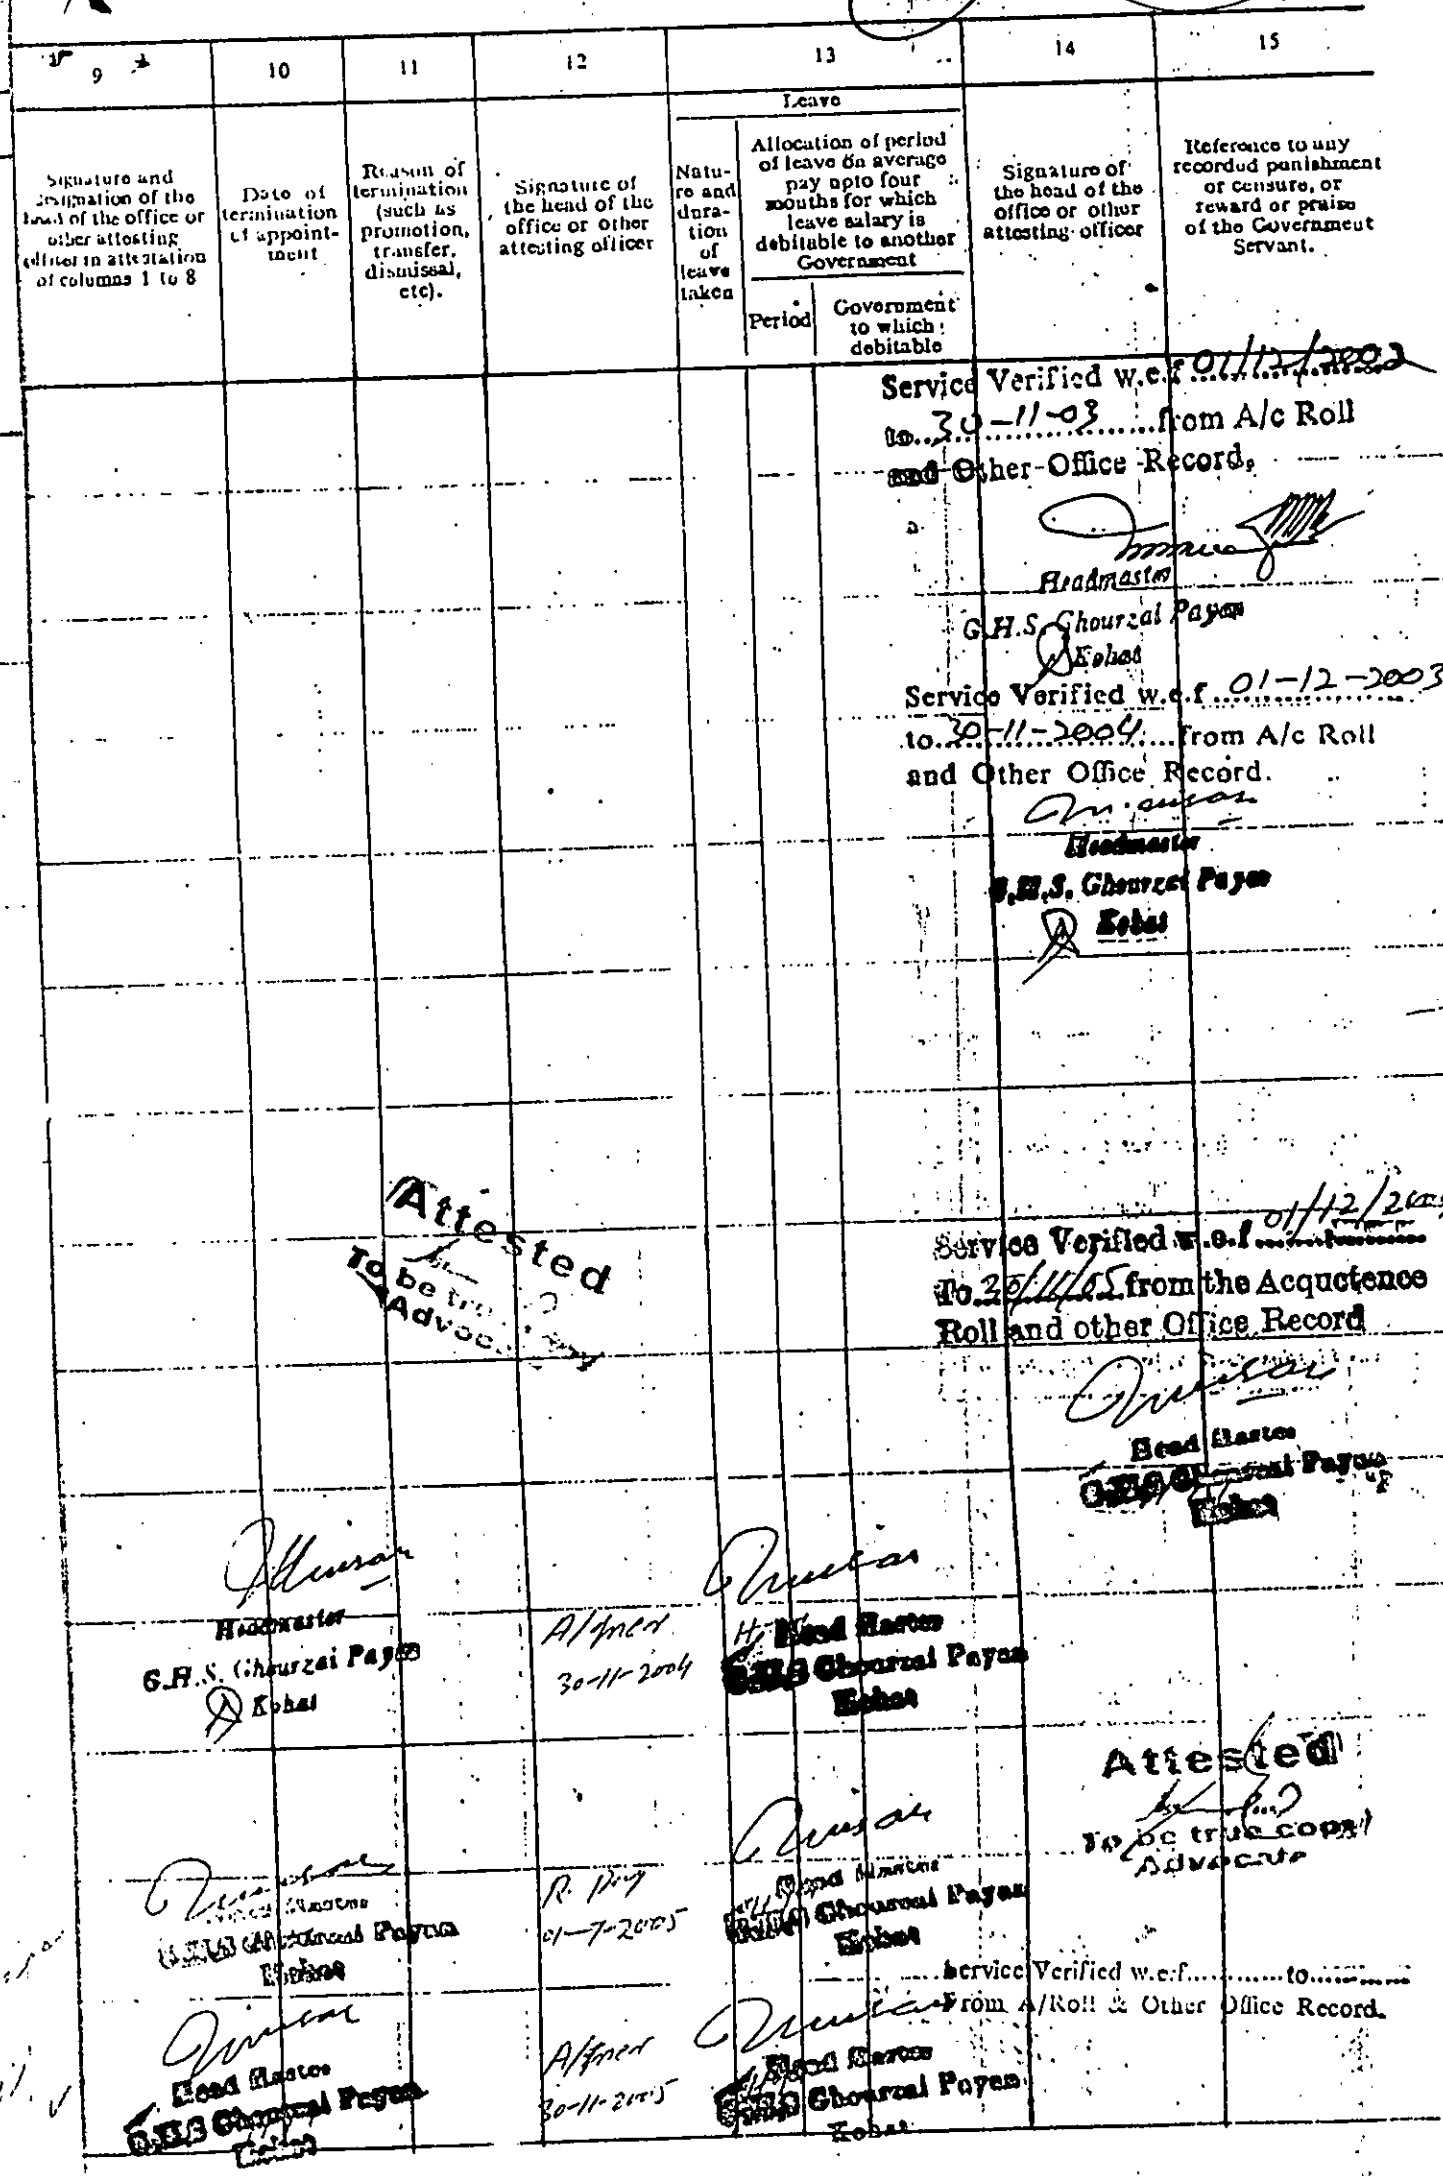 9
10
11
12
13
14
15
Signature and
designation of the
head of the office or
other attesting
officer in attestation
of columns 1 to 8
Date of
termination
of appoint-
ment
Reason of
termination
(such as
promotion,
transfer,
dismissal,
etc).
Signature of
the head of the
office or other
attesting officer
Leave
Natu-
re and
dura-
tion
of
leave
taken
Allocation of period
of leave on average
pay upto four
months for which
leave salary is
debitable to another
Government
Period
Government
to which
debitable
Signature of
the head of the
office or other
attesting officer
Reference to any
recorded punishment
or censure, or
reward or praise
of the Government
Servant.
Service Verified w.e.f 01/12/2002
to 30-11-03 from A/c Roll
and Other Office Record,
Headmaster
G.H.S. Ghourzai Payan
Kohat
Service Verified w.e.f 01-12-2003
to 30-11-2004 from A/c Roll
and Other Office Record.
Headmaster
G.H.S. Ghourzai Payan
Kohat
Attested
To be true
Advoc
Service Verified w.e.f 01/12/
To 30/11/05 from the Acquctence
Roll and other Office Record
Head Master
G.H.S Ghourzai Payan
Kohat
Headmaster
G.H.S. Ghourzai Payan
Kohat
30-11-2004
Head Master
G.H.S Ghourzai Payan
Kohat
Attested
To be true copy
Advocate
Head Master
G.H.S Ghourzai Payan
Kohat
01-7-2005
Head Master
G.H.S Ghourzai Payan
Kohat
Service Verified w.e.f............to............
From A/Roll & Other Office Record.
Head Master
G.H.S Ghourzai Payan
Kohat
30-11-2005
Head Master
G.H.S Ghourzai Payan
Kohat